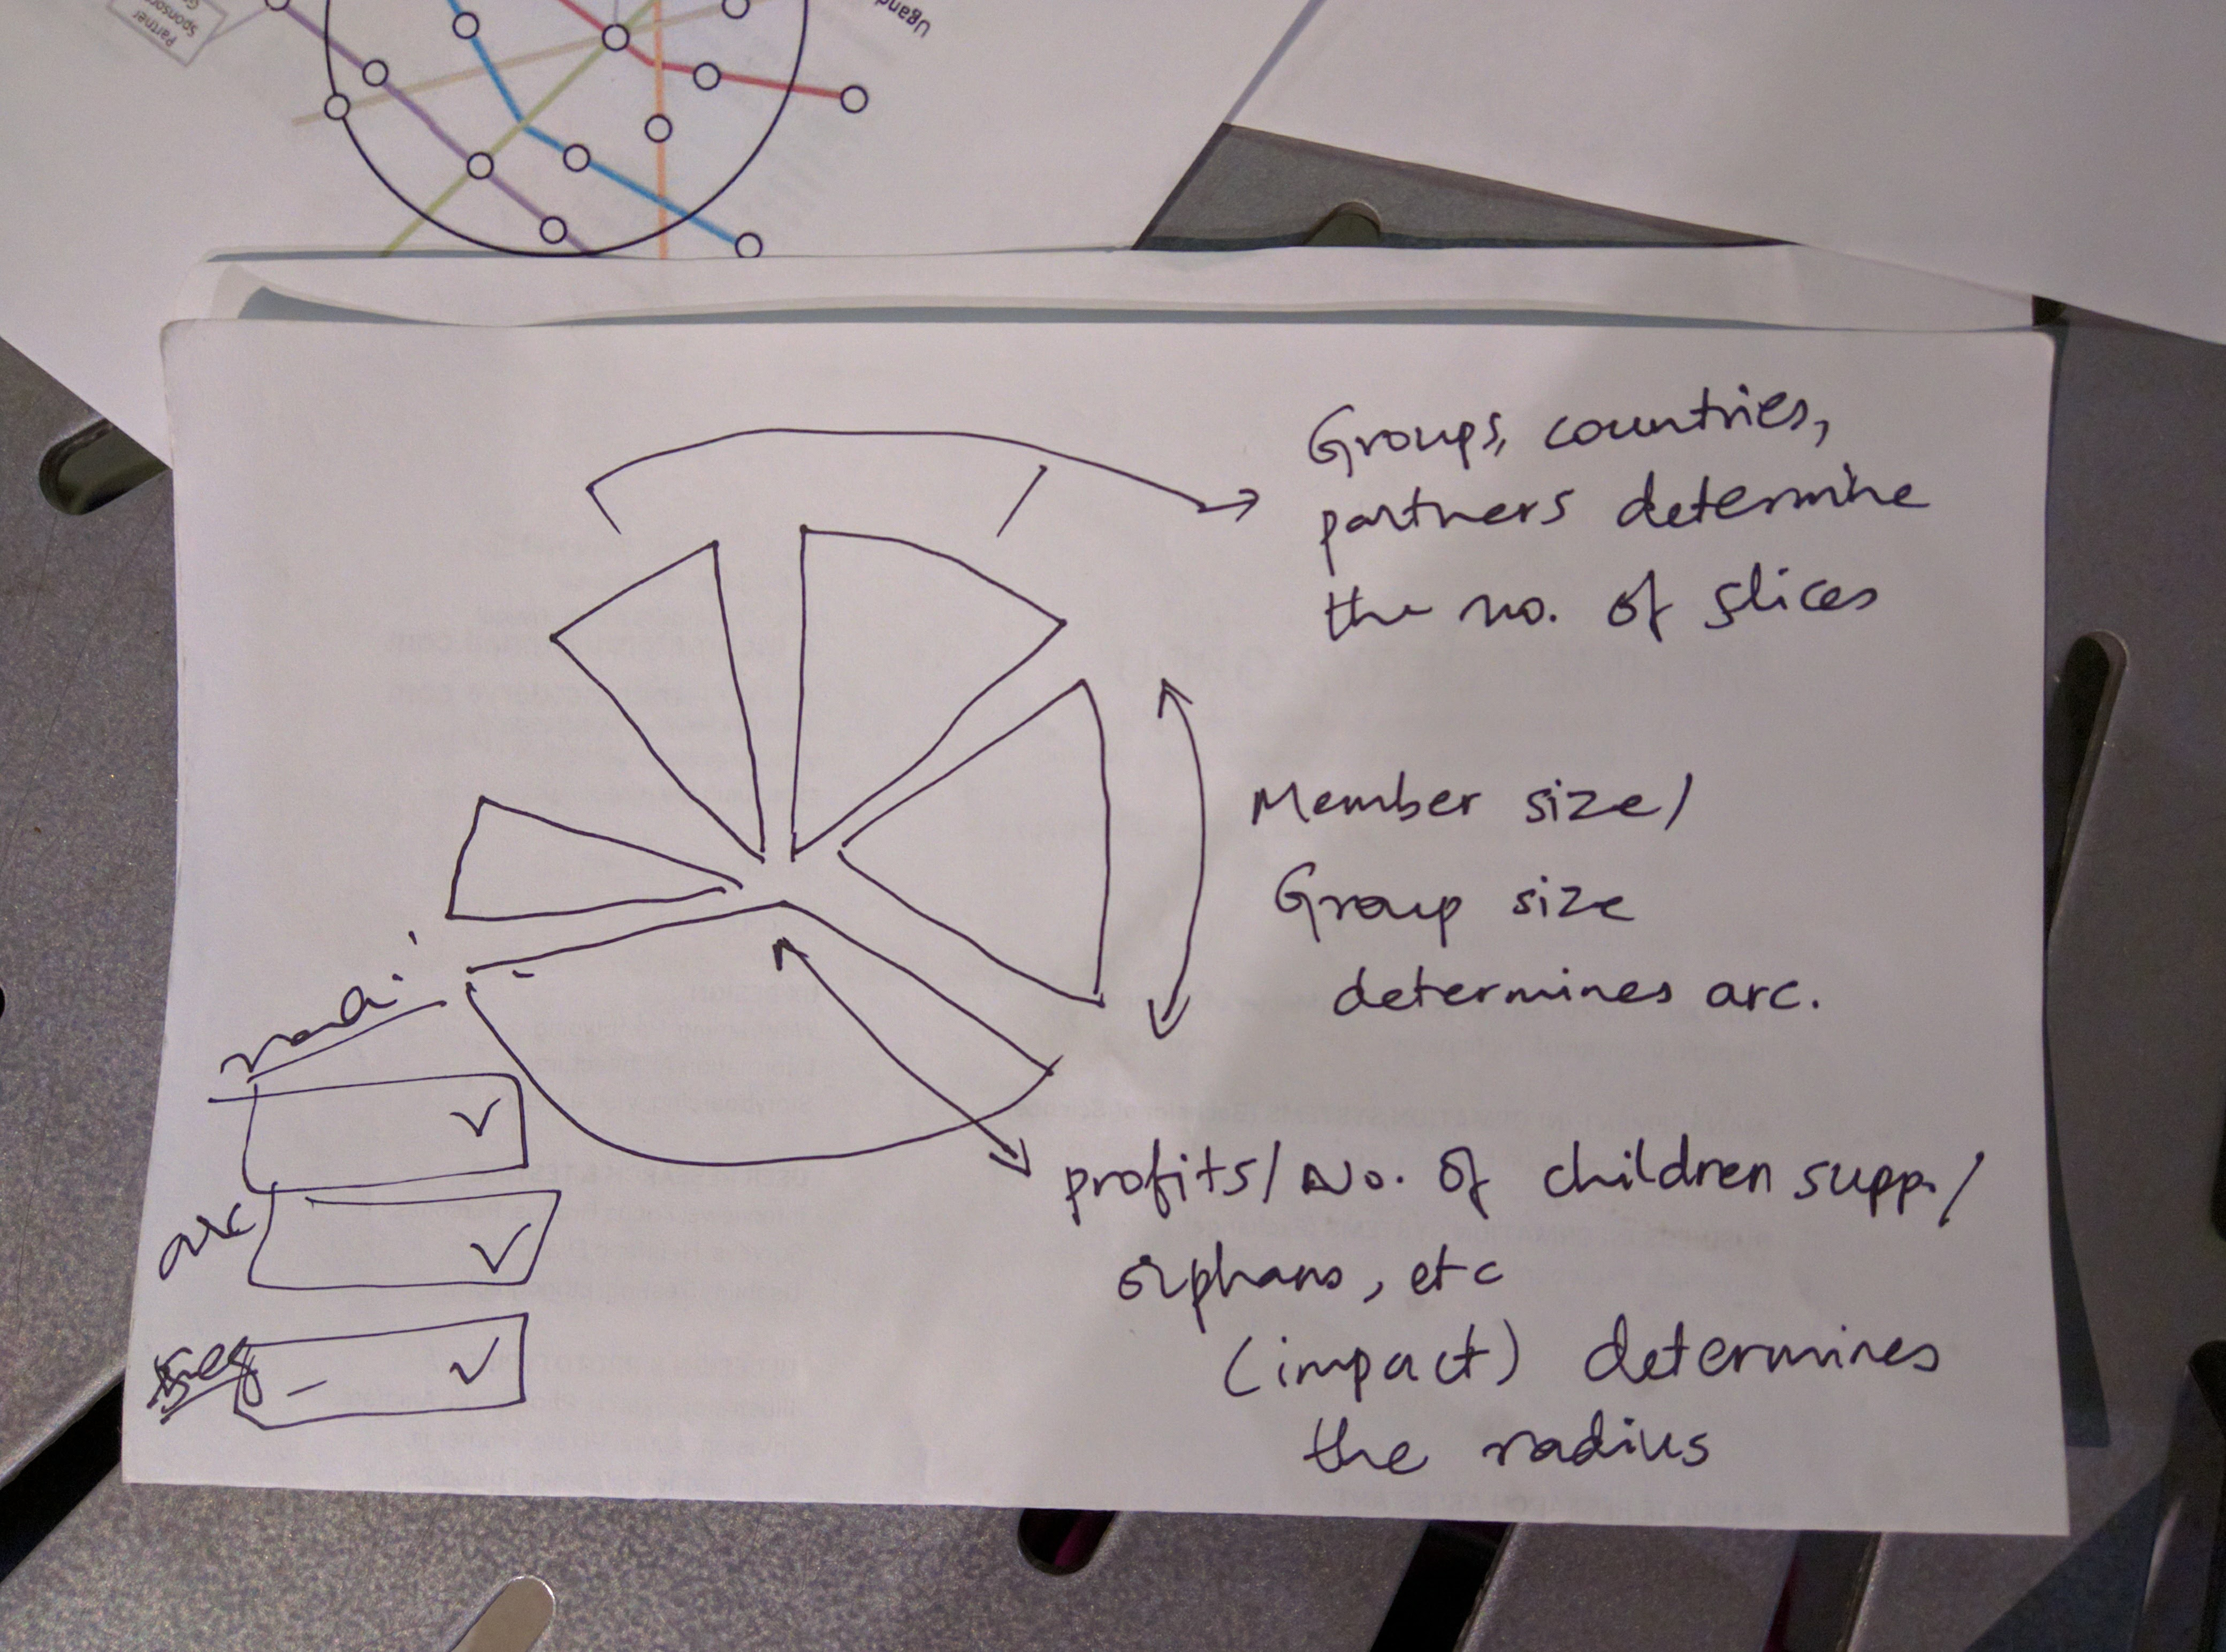 Partner
Sponsors
Ugand
Groups, countries,
partners determine
the no. of slices
Member size/
Group size
determines arc.
profits/No. of children supp./
orphans, etc
(impact) determines
the radius
arc
seg